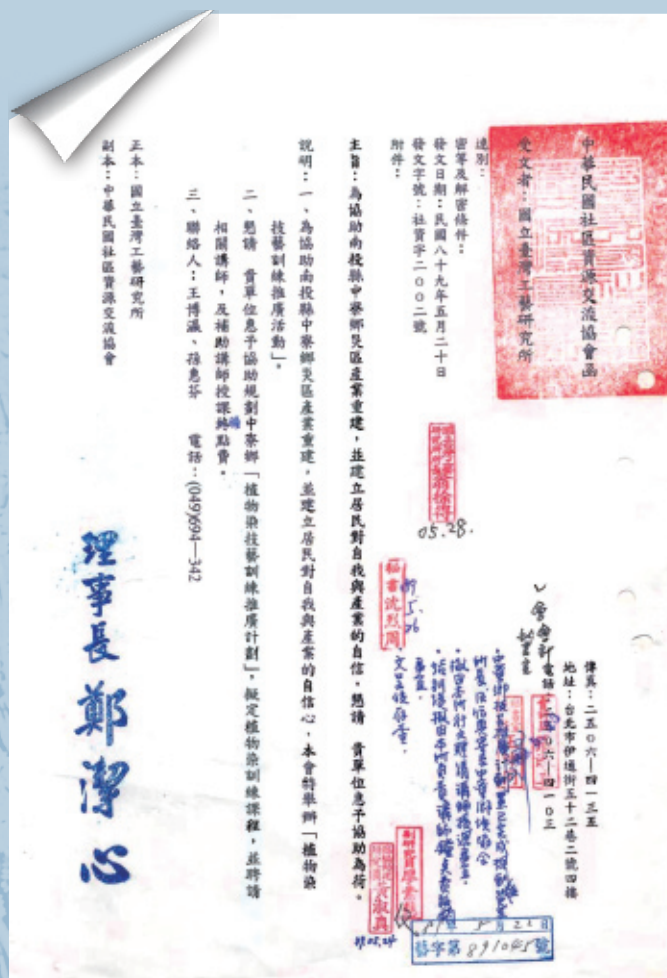 中華民國社區資源交流協會函
傳真：二五０六—四一三五
地址：台北市伊通街五十二巷二號四樓
電話：二五０六—四一０三
受文者：國立臺灣工藝研究所
速別：
密等及解密條件：
發文日期：民國八十九年五月二十日
發文字號：社資字二００二號
附件：
主旨：為協助南投縣中寮鄉災區產業重建，並建立居民對自我與產業的自信，懇請　貴單位惠予協助為荷。
說明：一、為協助南投縣中寮鄉災區產業重建，並建立居民對自我與產業的自信心，本會特舉辦「植物染
技藝訓練推廣活動」。
二、懇請　貴單位惠予協助規劃中寮鄉「植物染技藝訓練推廣計劃」，擬定植物染訓練課程，並聘請
相關講師，及補助講師授課鐘點費。
三、聯絡人：王博瀛、孫惠芬　電話：(049)694—342
正本：國立臺灣工藝研究所
副本：中華民國社區資源交流協會
理事長 鄭潔心
05.28.
秘書沈烈周
文呈後存查。
5月22日
藝字第891045號